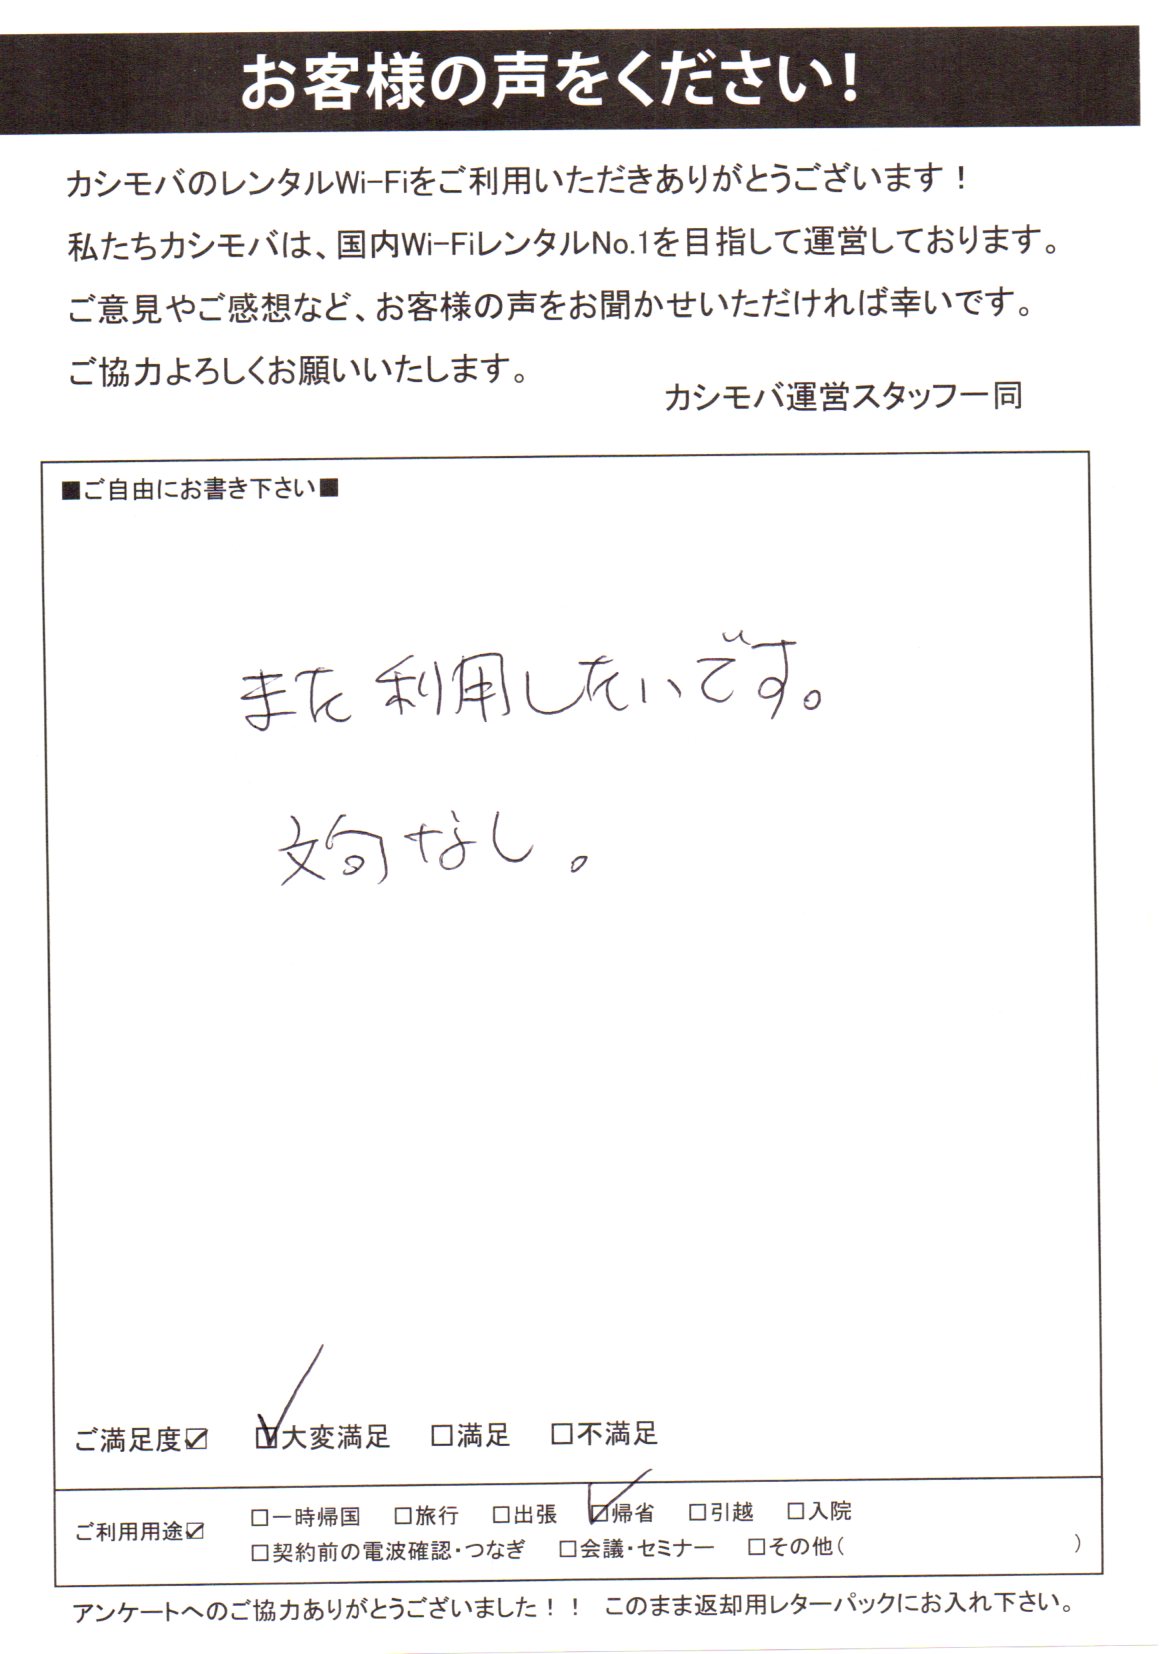 お客様の声をください!
カシモバのレンタルWi-Fiをご利用いただきありがとうございます！
私たちカシモバは、国内Wi-FiレンタルNo.1を目指して運営しております。
ご意見やご感想など、お客様の声をお聞かせいただければ幸いです。
ご協力よろしくお願いいたします。
カシモバ運営スタッフ一同
■ご自由にお書き下さい■
また利用したいです。
文句なし。
ご満足度☑ ☑大変満足 □満足 □不満足
ご利用用途☑ □一時帰国 □旅行 □出張 ☑帰省 □引越 □入院
□契約前の電波確認・つなぎ □会議・セミナー □その他( )
アンケートへのご協力ありがとうございました！！ このまま返却用レターパックにお入れ下さい。